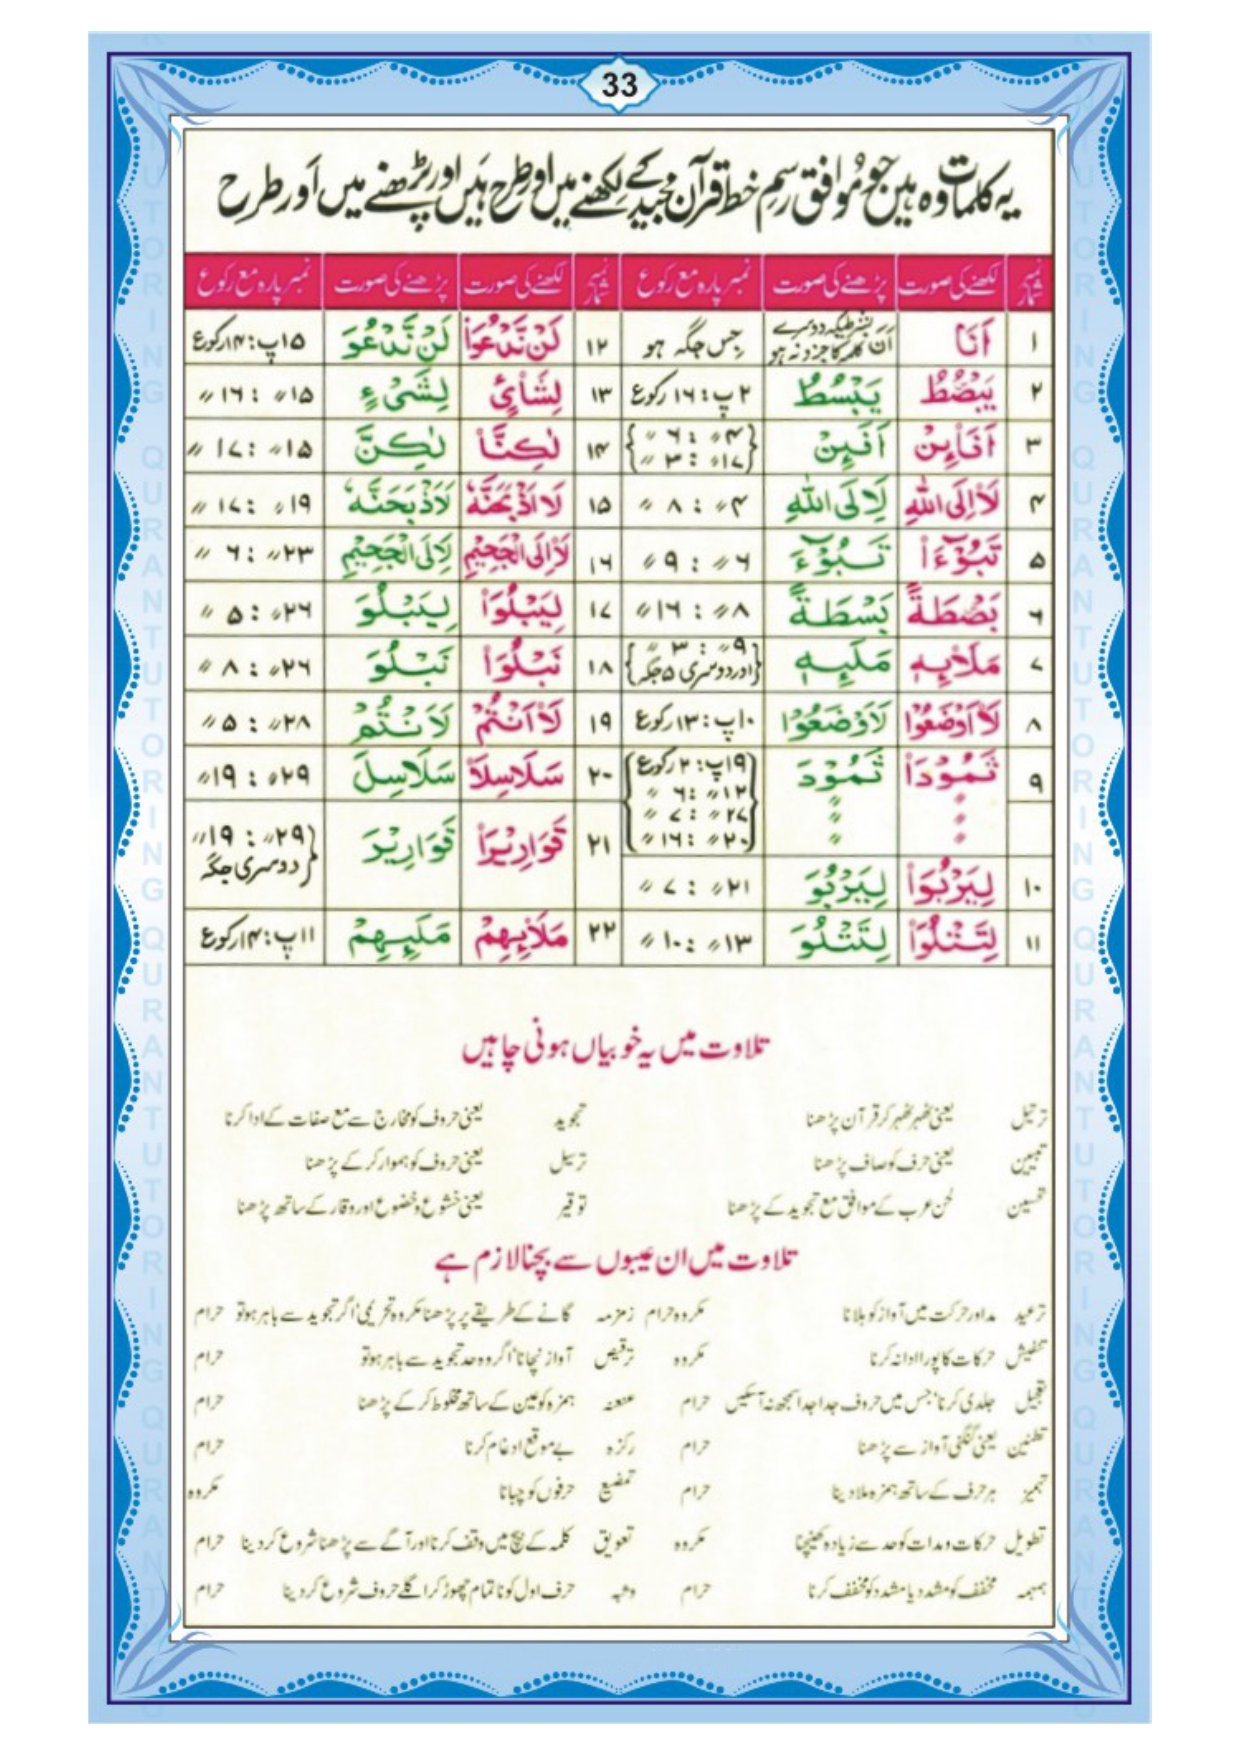 33
یہ کلمات وہ ہیں جو موافق رسم خط قرآن مجید کے لکھنے میں اور طرح ہیں اور پڑھنے میں اور طرح
نمبر شمار لکھنے کی صورت پڑھنے کی صورت نمبر پارہ مع رکوع نمبر شمار لکھنے کی صورت پڑھنے کی صورت نمبر پارہ مع رکوع
۱ اَنَا اَنَ بشرطیکہ دوسرے کلمہ کا جزو نہ ہو جس جگہ ہو ۱۲ لَنْ نَّدْعُوَا۟ لَنْ نَّدْعُوَ ۱۵پ: ۱۴رکوع
۲ يَبْصُۜطُ يَبْسُطُ ۲پ: ۱۶ رکوع ۱۳ لِشَا۟ىْءٍ لِشَىْءٍ ۱۵〃: ۱۶〃
۳ اَفَا۟ئِنْ اَفَئِنْ ۴〃: ۶〃 ۱۷〃: ۳〃 ۱۴ لٰكِنَّا۟ لٰكِنَّ ۱۵〃: ۱۷〃
۴ لَا۟اِلَى اللّٰهِ لَاِلَى اللّٰهِ ۴〃: ۸〃 ۱۵ لَا۟اَذْبَحَنَّهٗ لَاَذْبَحَنَّهٗ ۱۹〃: ۱۷〃
۵ تَبُوْٓءَا۟ تَبُوْٓءَ ۶〃: ۹〃 ۱۶ لَا۟اِلَى الْجَحِيْمِ لَاِلَى الْجَحِيْمِ ۲۳〃: ۶〃
۶ بَصْۜطَةً بَسْطَةً ۸〃: ۱۶〃 ۱۷ لِيَبْلُوَا۟ لِيَبْلُوَ ۲۶〃: ۵〃
۷ مَلَا۟ئِهٖ مَلَئِهٖ ۹〃: ۳〃 اور دوسری ۵ جگہ ۱۸ نَبْلُوَا۟ نَبْلُوَ ۲۶〃: ۸〃
۸ لَا۟اَوْضَعُوْا لَاَوْضَعُوْا ۱۰پ: ۱۳رکوع ۱۹ لَا۟اَنْتُمْ لَاَنْتُمْ ۲۸〃: ۵〃
۹ ثَمُوْدَا۟ ثَمُوْدَ ۱۹پ: ۲رکوع ۲۰ سَلَاسِلَا۟ سَلَاسِلَ ۲۹〃: ۱۹〃
〃 〃 ۱۲〃: ۶〃
〃 〃 ۲۷〃: ۷〃 ۲۱ قَوَارِيْرَا۟ قَوَارِيْرَ ۲۹〃: ۱۹〃 دوسری جگہ
〃 〃 ۲۰〃: ۱۶〃
۱۰ لِيَرْبُوَا۟ لِيَرْبُوَ ۲۱〃: ۷〃
۱۱ لِتَتْلُوَا۟ لِتَتْلُوَ ۱۳〃: ۱۰〃 ۲۲ مَلَا۟ئِهِمْ مَلَئِهِمْ ۱۱پ: ۱۴رکوع
تلاوت میں یہ خوبیاں ہونی چاہیں
ترتیل یعنی ٹھہر ٹھہر کر قرآن پڑھنا تجوید یعنی حروف کو مخارج سے مع صفات کے ادا کرنا
تبیین یعنی حرف کو صاف پڑھنا ترسیل یعنی حروف کو ہموار کر کے پڑھنا
تحسین لحن عرب کے موافق مع تجوید کے پڑھنا توقیر یعنی خشوع و خضوع اور وقار کے ساتھ پڑھنا
تلاوت میں ان عیبوں سے بچنا لازم ہے
ترعید مد اور حرکت میں آواز کو ہلانا مکروہ حرام زمزمہ گانے کے طریقے پر پڑھنا مکروہ تحریمی، اگر تجوید سے باہر ہو تو حرام
تنفیش حرکات کا پورا ادا نہ کرنا مکروہ ترقیص آواز نچانا، اگر وہ حد تجوید سے باہر ہو تو حرام
تعجیل جلدی کرنا، جس میں حروف جدا جدا سمجھ نہ آسکیں حرام عنعنہ ہمزہ کو عین کے ساتھ مخلوط کر کے پڑھنا حرام
تطنین یعنی گنگنی آواز سے پڑھنا حرام رکزہ بے موقع ادغام کرنا حرام
تہمیز ہر حرف کے ساتھ ہمزہ ملا دینا حرام تمضیغ حرفوں کو چبانا مکروہ
تطویل حرکات و مدات کو حد سے زیادہ کھینچنا مکروہ تعویق کلمہ کے بیچ میں وقف کرنا اور آگے سے پڑھنا شروع کر دینا حرام
ہمہمہ مخفف کو مشدد یا مشدد کو مخفف کرنا حرام وثبہ حرف اول کو ناتمام چھوڑ کر اگلے حروف شروع کر دینا حرام
QURAN TUTORING